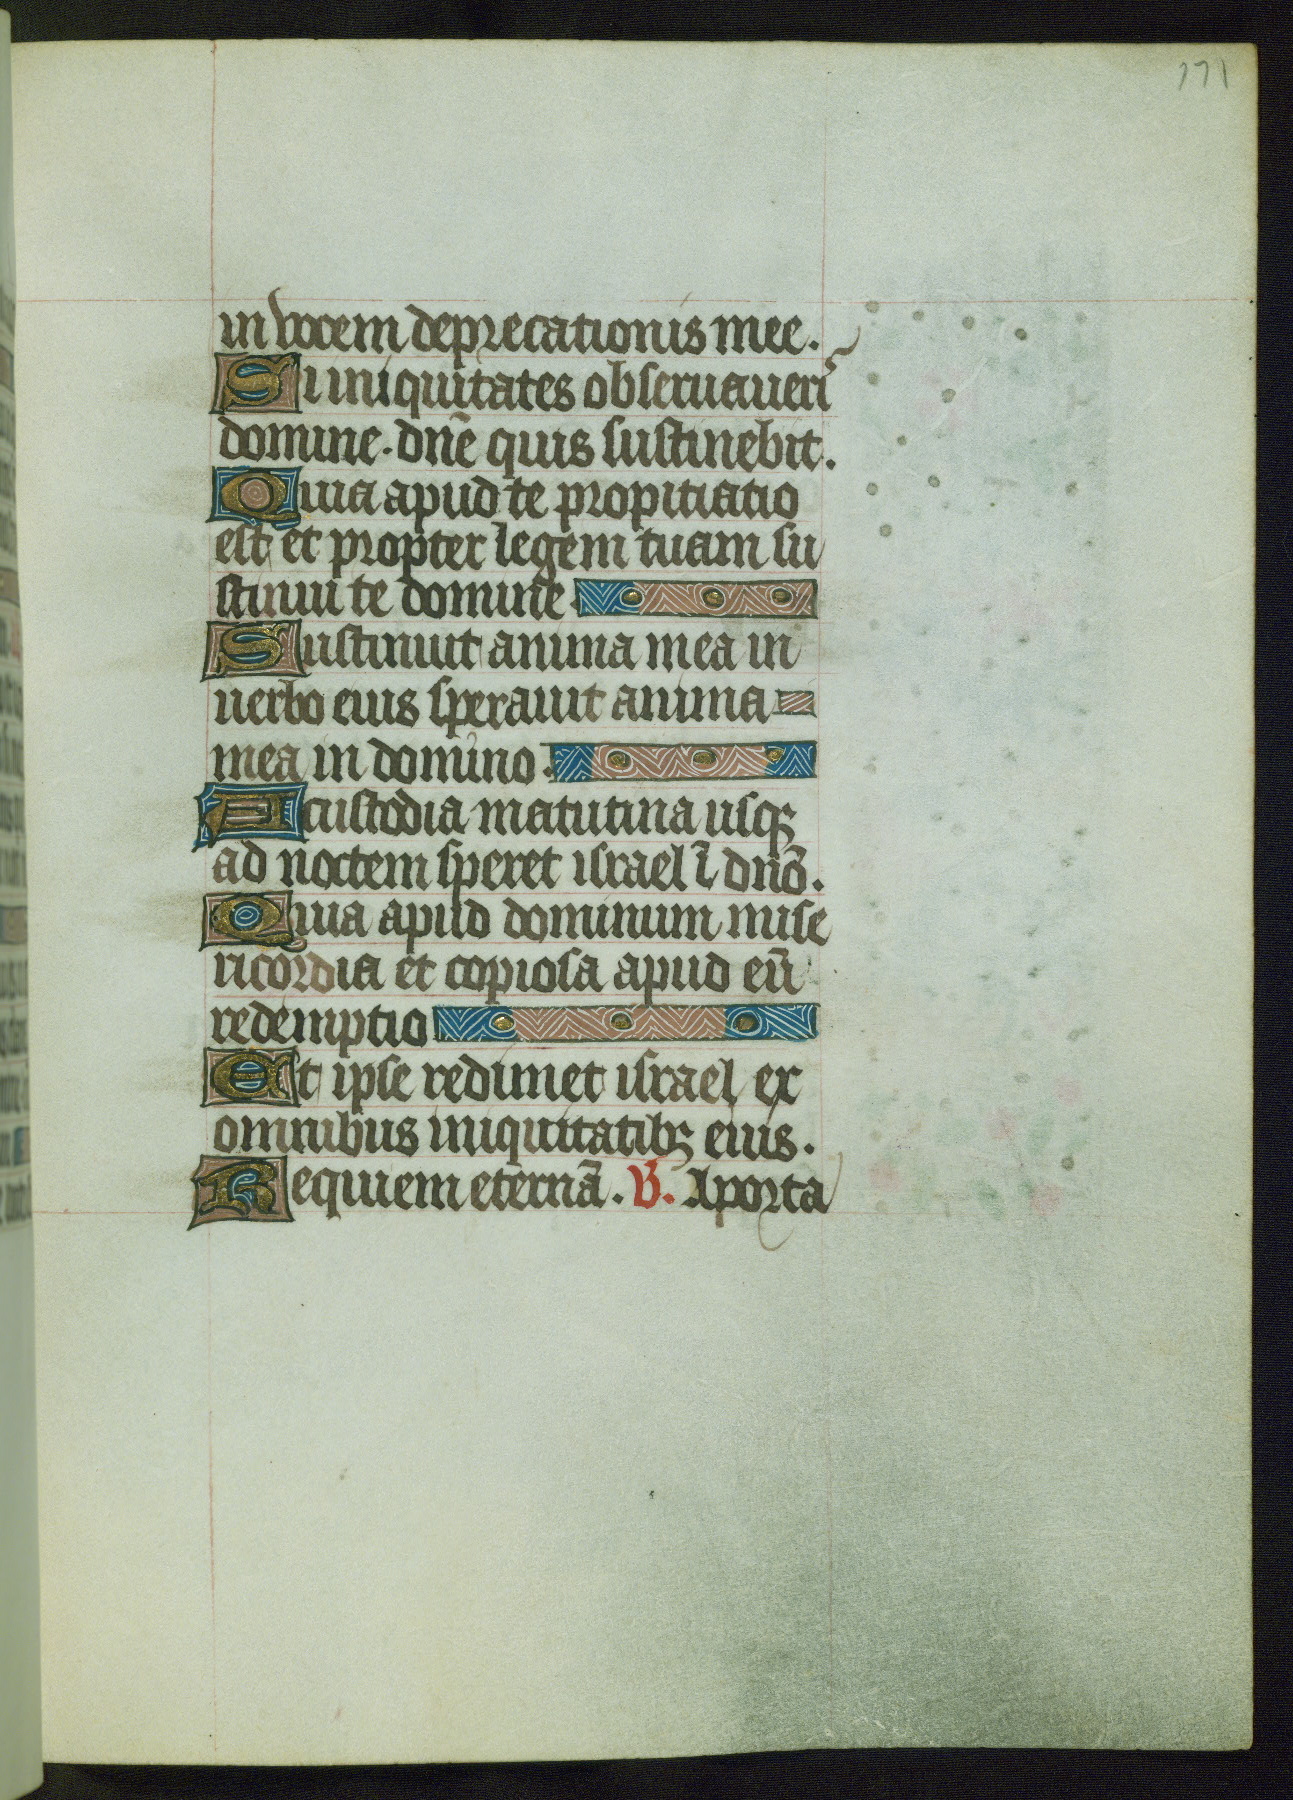 171
in vocem deprecationis mee.
Si iniquitates obseruaueri᷒
domine. dn̄e quis sustinebit.
Quia apud te propitiatio
est et propter legem tuam su
stinui te domine.
Sustinuit anima mea in
uerbo eius sperauit anima
mea in domino.
A custodia matutina usqꝫ
ad noctem speret israel ī dn̄o.
Quia apud dominum mise
ricordia et copiosa apud eū
redemptio
Et ipse redimet israel ex
omnibus iniquitatibꝫ eius.
Requiem eternā. V̄. A porta